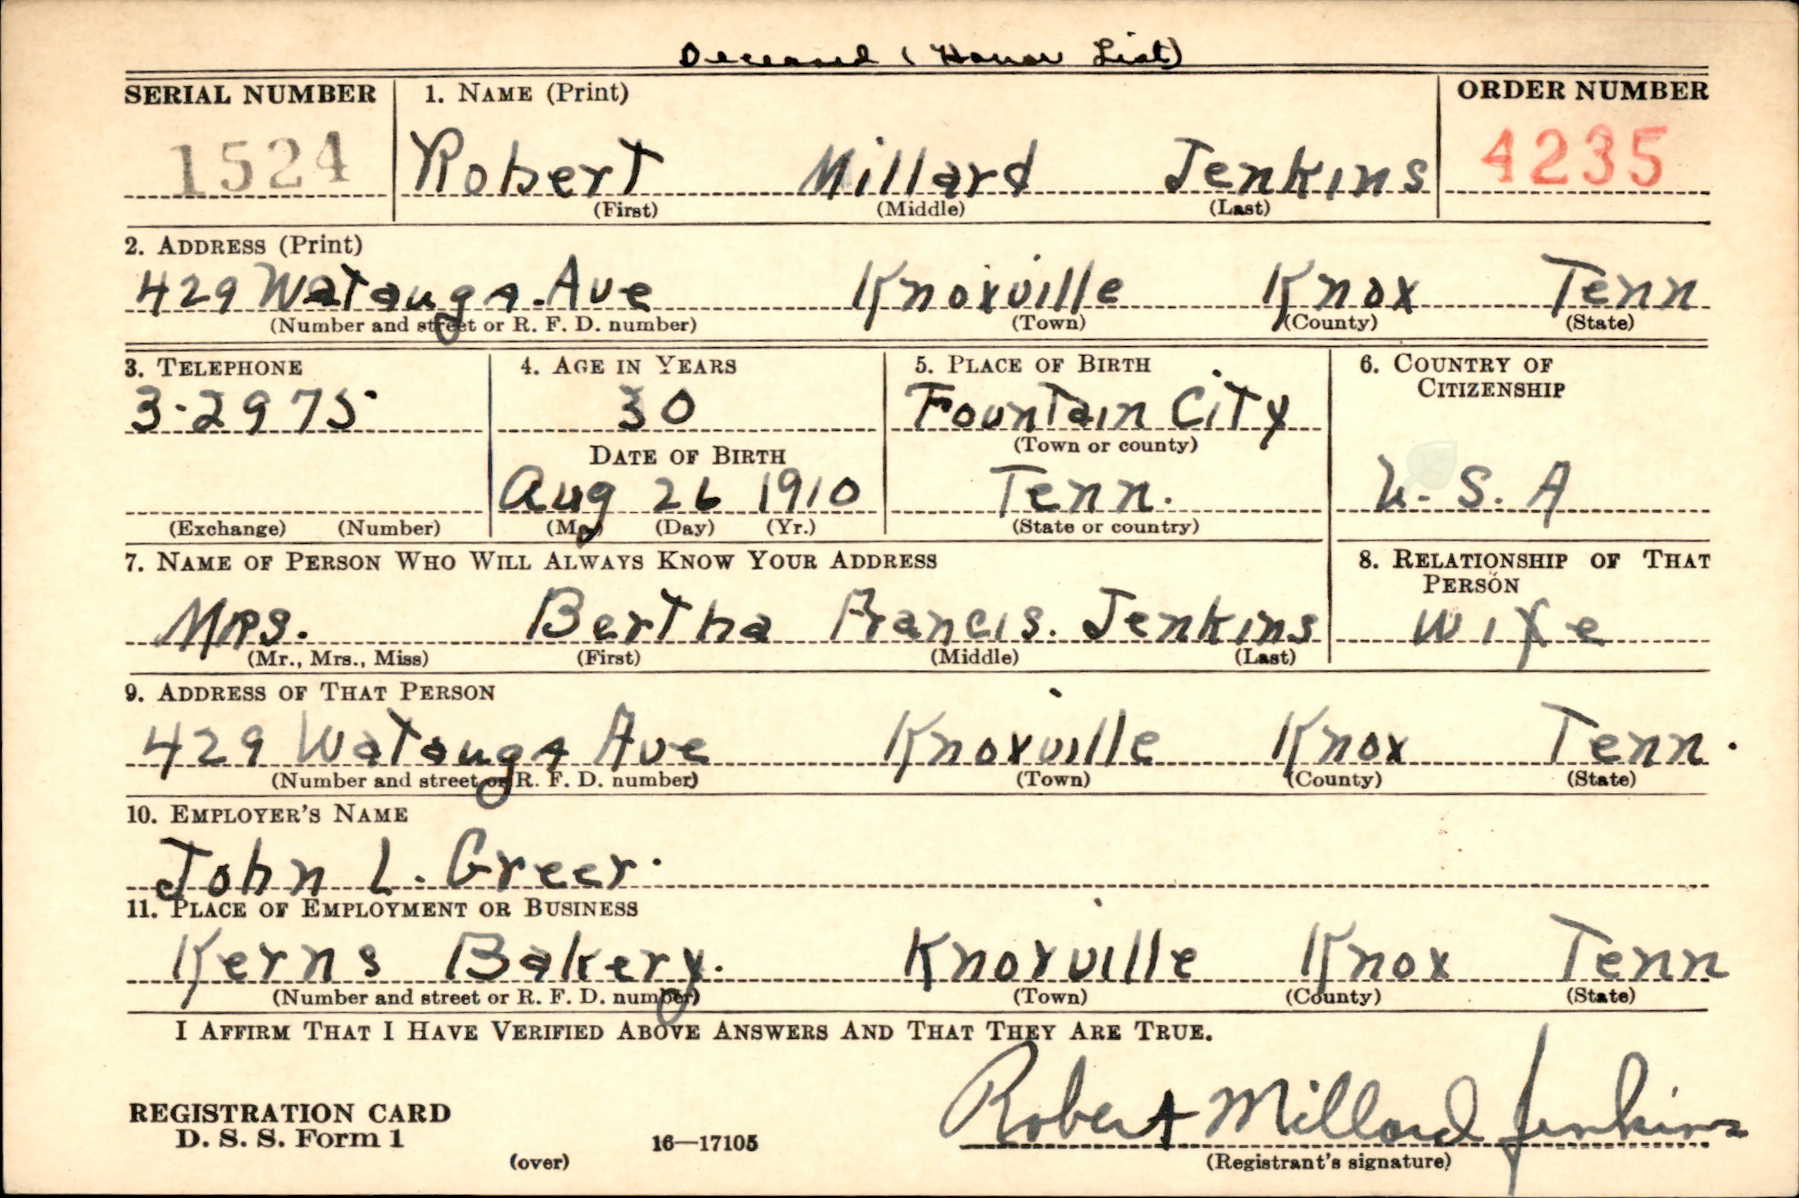 Deceased (Honor List)
SERIAL NUMBER 1. NAME (Print) ORDER NUMBER
1524 Robert Millard Jenkins 4235
(First) (Middle) (Last)
2. ADDRESS (Print)
429 Watauga Ave Knoxville Knox Tenn
(Number and street or R. F. D. number) (Town) (County) (State)
3. TELEPHONE 4. AGE IN YEARS 5. PLACE OF BIRTH 6. COUNTRY OF
CITIZENSHIP
3-2975 30 Fountain City
(Town or county)
DATE OF BIRTH
Aug 26 1910 Tenn. U. S. A
(Exchange) (Number) (Mo.) (Day) (Yr.) (State or country)
7. NAME OF PERSON WHO WILL ALWAYS KNOW YOUR ADDRESS 8. RELATIONSHIP OF THAT
PERSON
Mrs. Bertha Francis. Jenkins wife
(Mr., Mrs., Miss) (First) (Middle) (Last)
9. ADDRESS OF THAT PERSON
429 Watauga Ave Knoxville Knox Tenn.
(Number and street or R. F. D. number) (Town) (County) (State)
10. EMPLOYER'S NAME
John L. Greer.
11. PLACE OF EMPLOYMENT OR BUSINESS
Kerns Bakery. Knoxville Knox Tenn
(Number and street or R. F. D. number) (Town) (County) (State)
I AFFIRM THAT I HAVE VERIFIED ABOVE ANSWERS AND THAT THEY ARE TRUE.
Robert Millard Jenkins
REGISTRATION CARD
D. S. S. Form 1 16—17105
(over) (Registrant's signature)